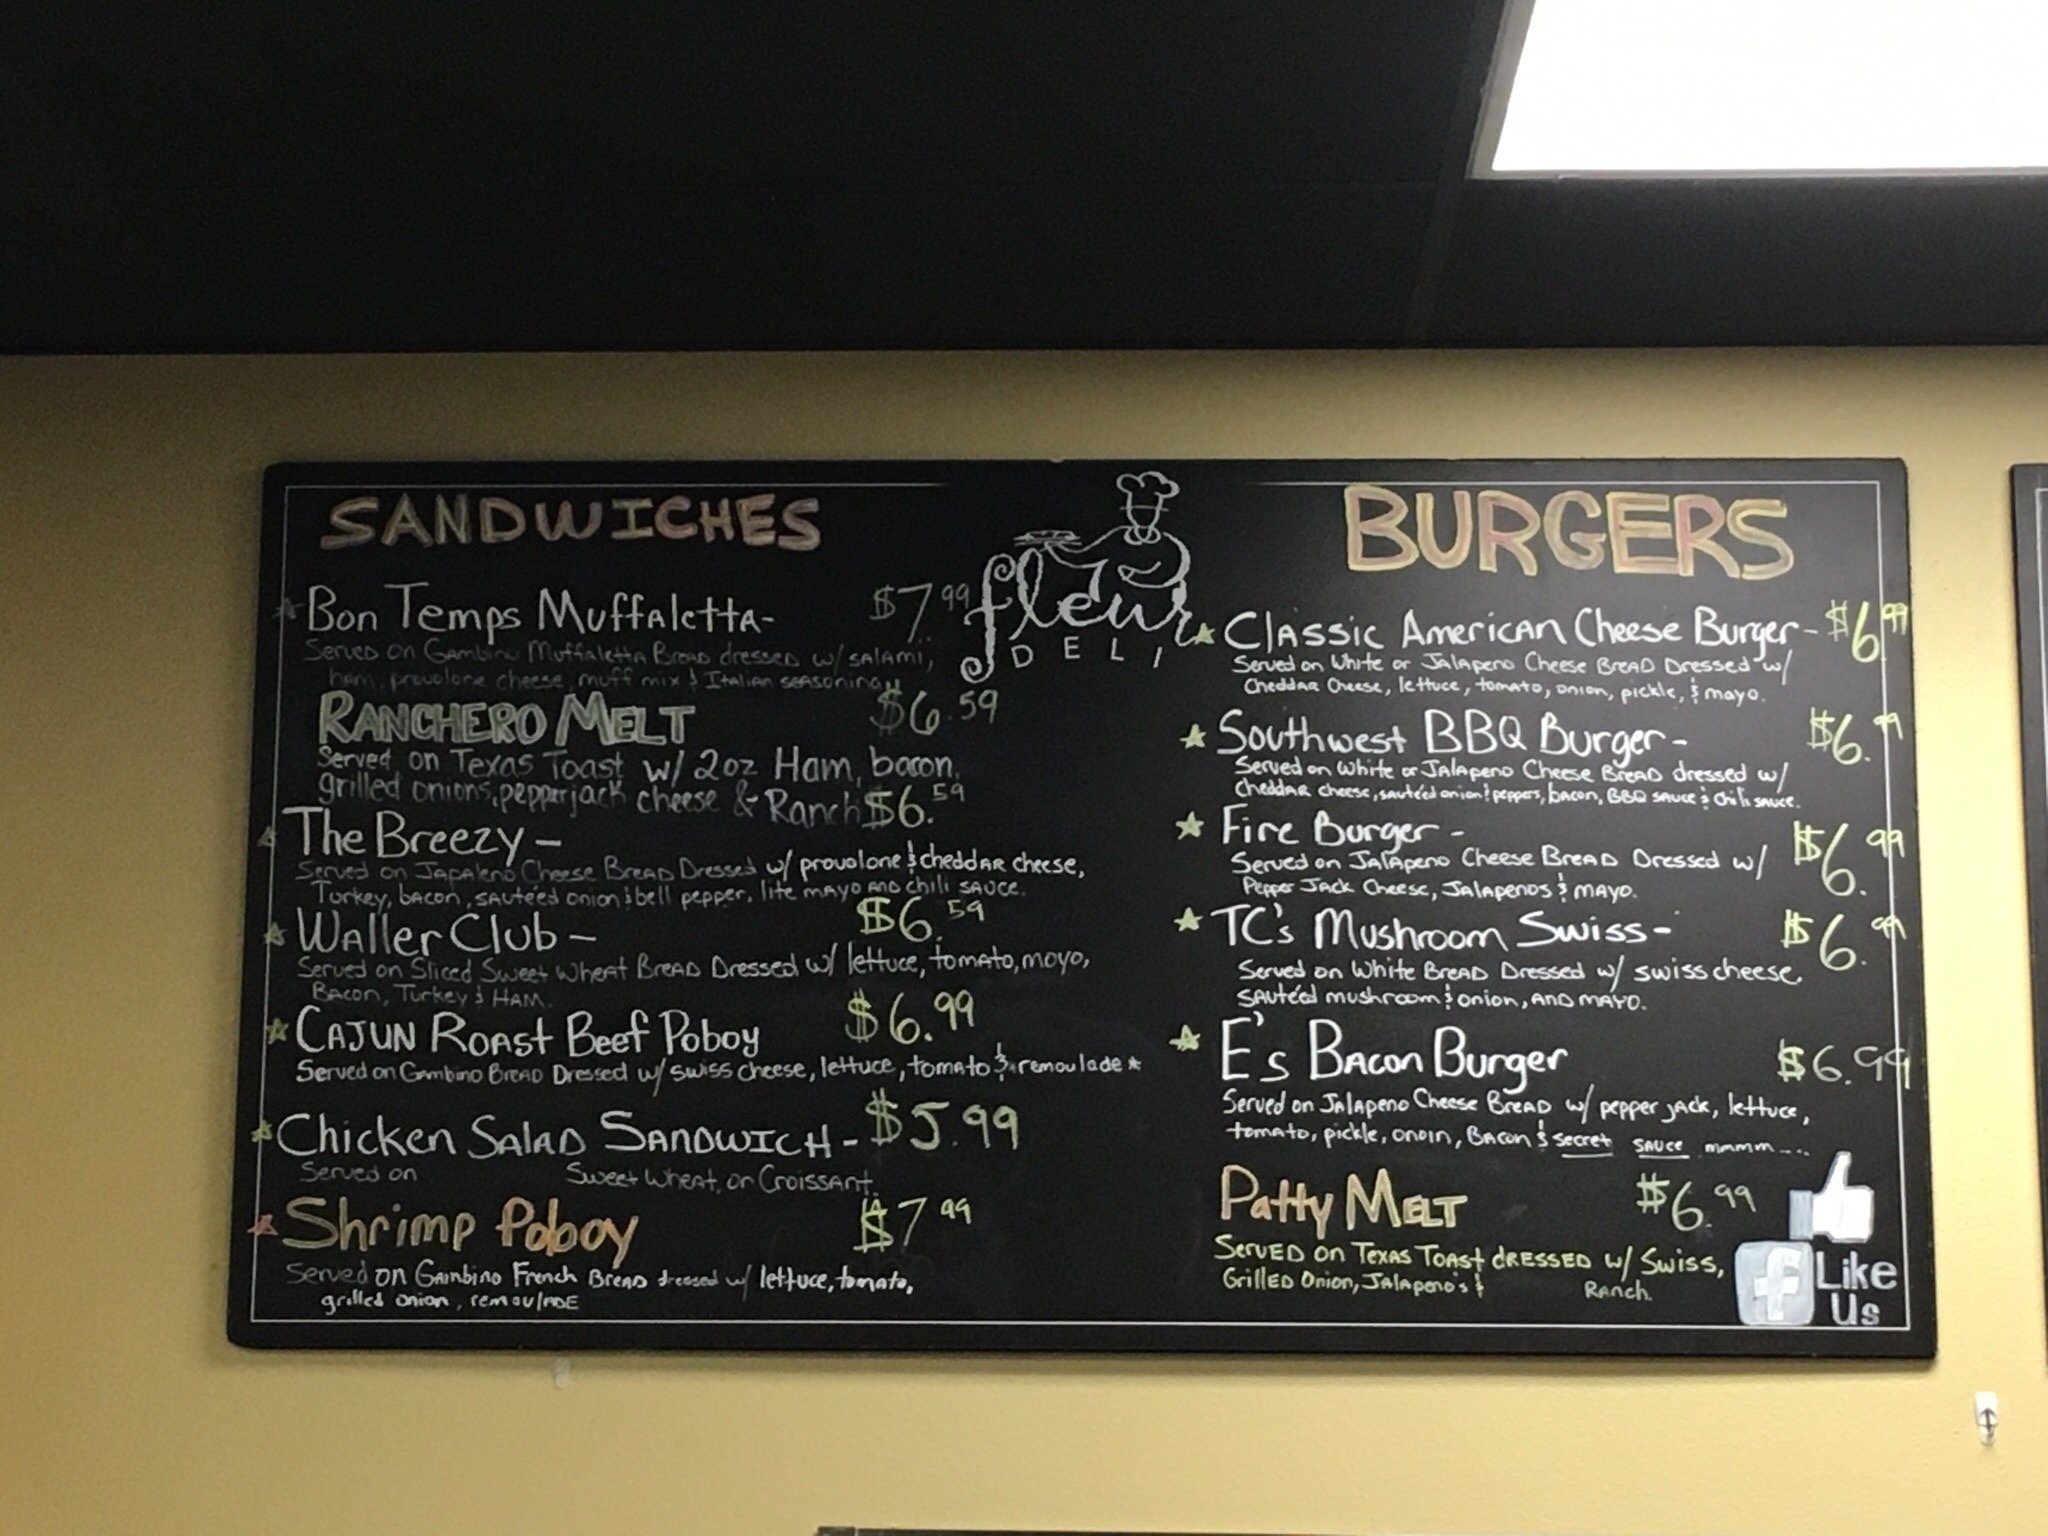 SANDWICHES
Bon Temps Muffaletta- $7.99
Served on Gambino Muffaletta Bread dressed w/ salami,
ham, provolone cheese, muff mix & Italian seasoning
Ranchero Melt $6.59
Served on Texas Toast w/ 2oz Ham, bacon,
grilled onions, pepperjack cheese & Ranch
The Breezy - $6.59
Served on Japaleno Cheese Bread Dressed w/ provolone & cheddar cheese,
Turkey, bacon, sauteéd onion & bell pepper, lite mayo and chili sauce.
Waller Club - $6.59
Served on Sliced Sweet Wheat Bread Dressed w/ lettuce, tomato, mayo,
Bacon, Turkey & Ham.
Cajun Roast Beef Poboy $6.99
Served on Gambino Bread Dressed w/ swiss cheese, lettuce, tomato & remoulade *
Chicken Salad Sandwich - $5.99
Served on Sweet Wheat, or Croissant.
Shrimp Poboy $7.99
Served on Gambino French Bread dressed w/ lettuce, tomato,
grilled onion, remoulade
fleur
DELI
BURGERS
Classic American Cheese Burger - $6.99
Served on White or Jalapeno Cheese Bread Dressed w/
Cheddar Cheese, lettuce, tomato, onion, pickle, & mayo.
Southwest BBQ Burger - $6.99
Served on White or Jalapeno Cheese Bread dressed w/
Cheddar cheese, sauteéd onion & peppers, bacon, BBQ sauce & chili sauce.
Fire Burger - $6.99
Served on Jalapeno Cheese Bread Dressed w/
Pepper Jack Cheese, Jalapenos & mayo.
TC's Mushroom Swiss - $6.99
Served on White Bread Dressed w/ swiss cheese,
sauteéd mushroom & onion, and mayo.
E's Bacon Burger $6.99
Served on Jalapeno Cheese Bread w/ pepper jack, lettuce,
tomato, pickle, onoin, Bacon & secret sauce mmmm....
Patty Melt $6.99
Served on Texas Toast dressed w/ Swiss,
Grilled Onion, Jalapeno's & Ranch.
f Like
Us